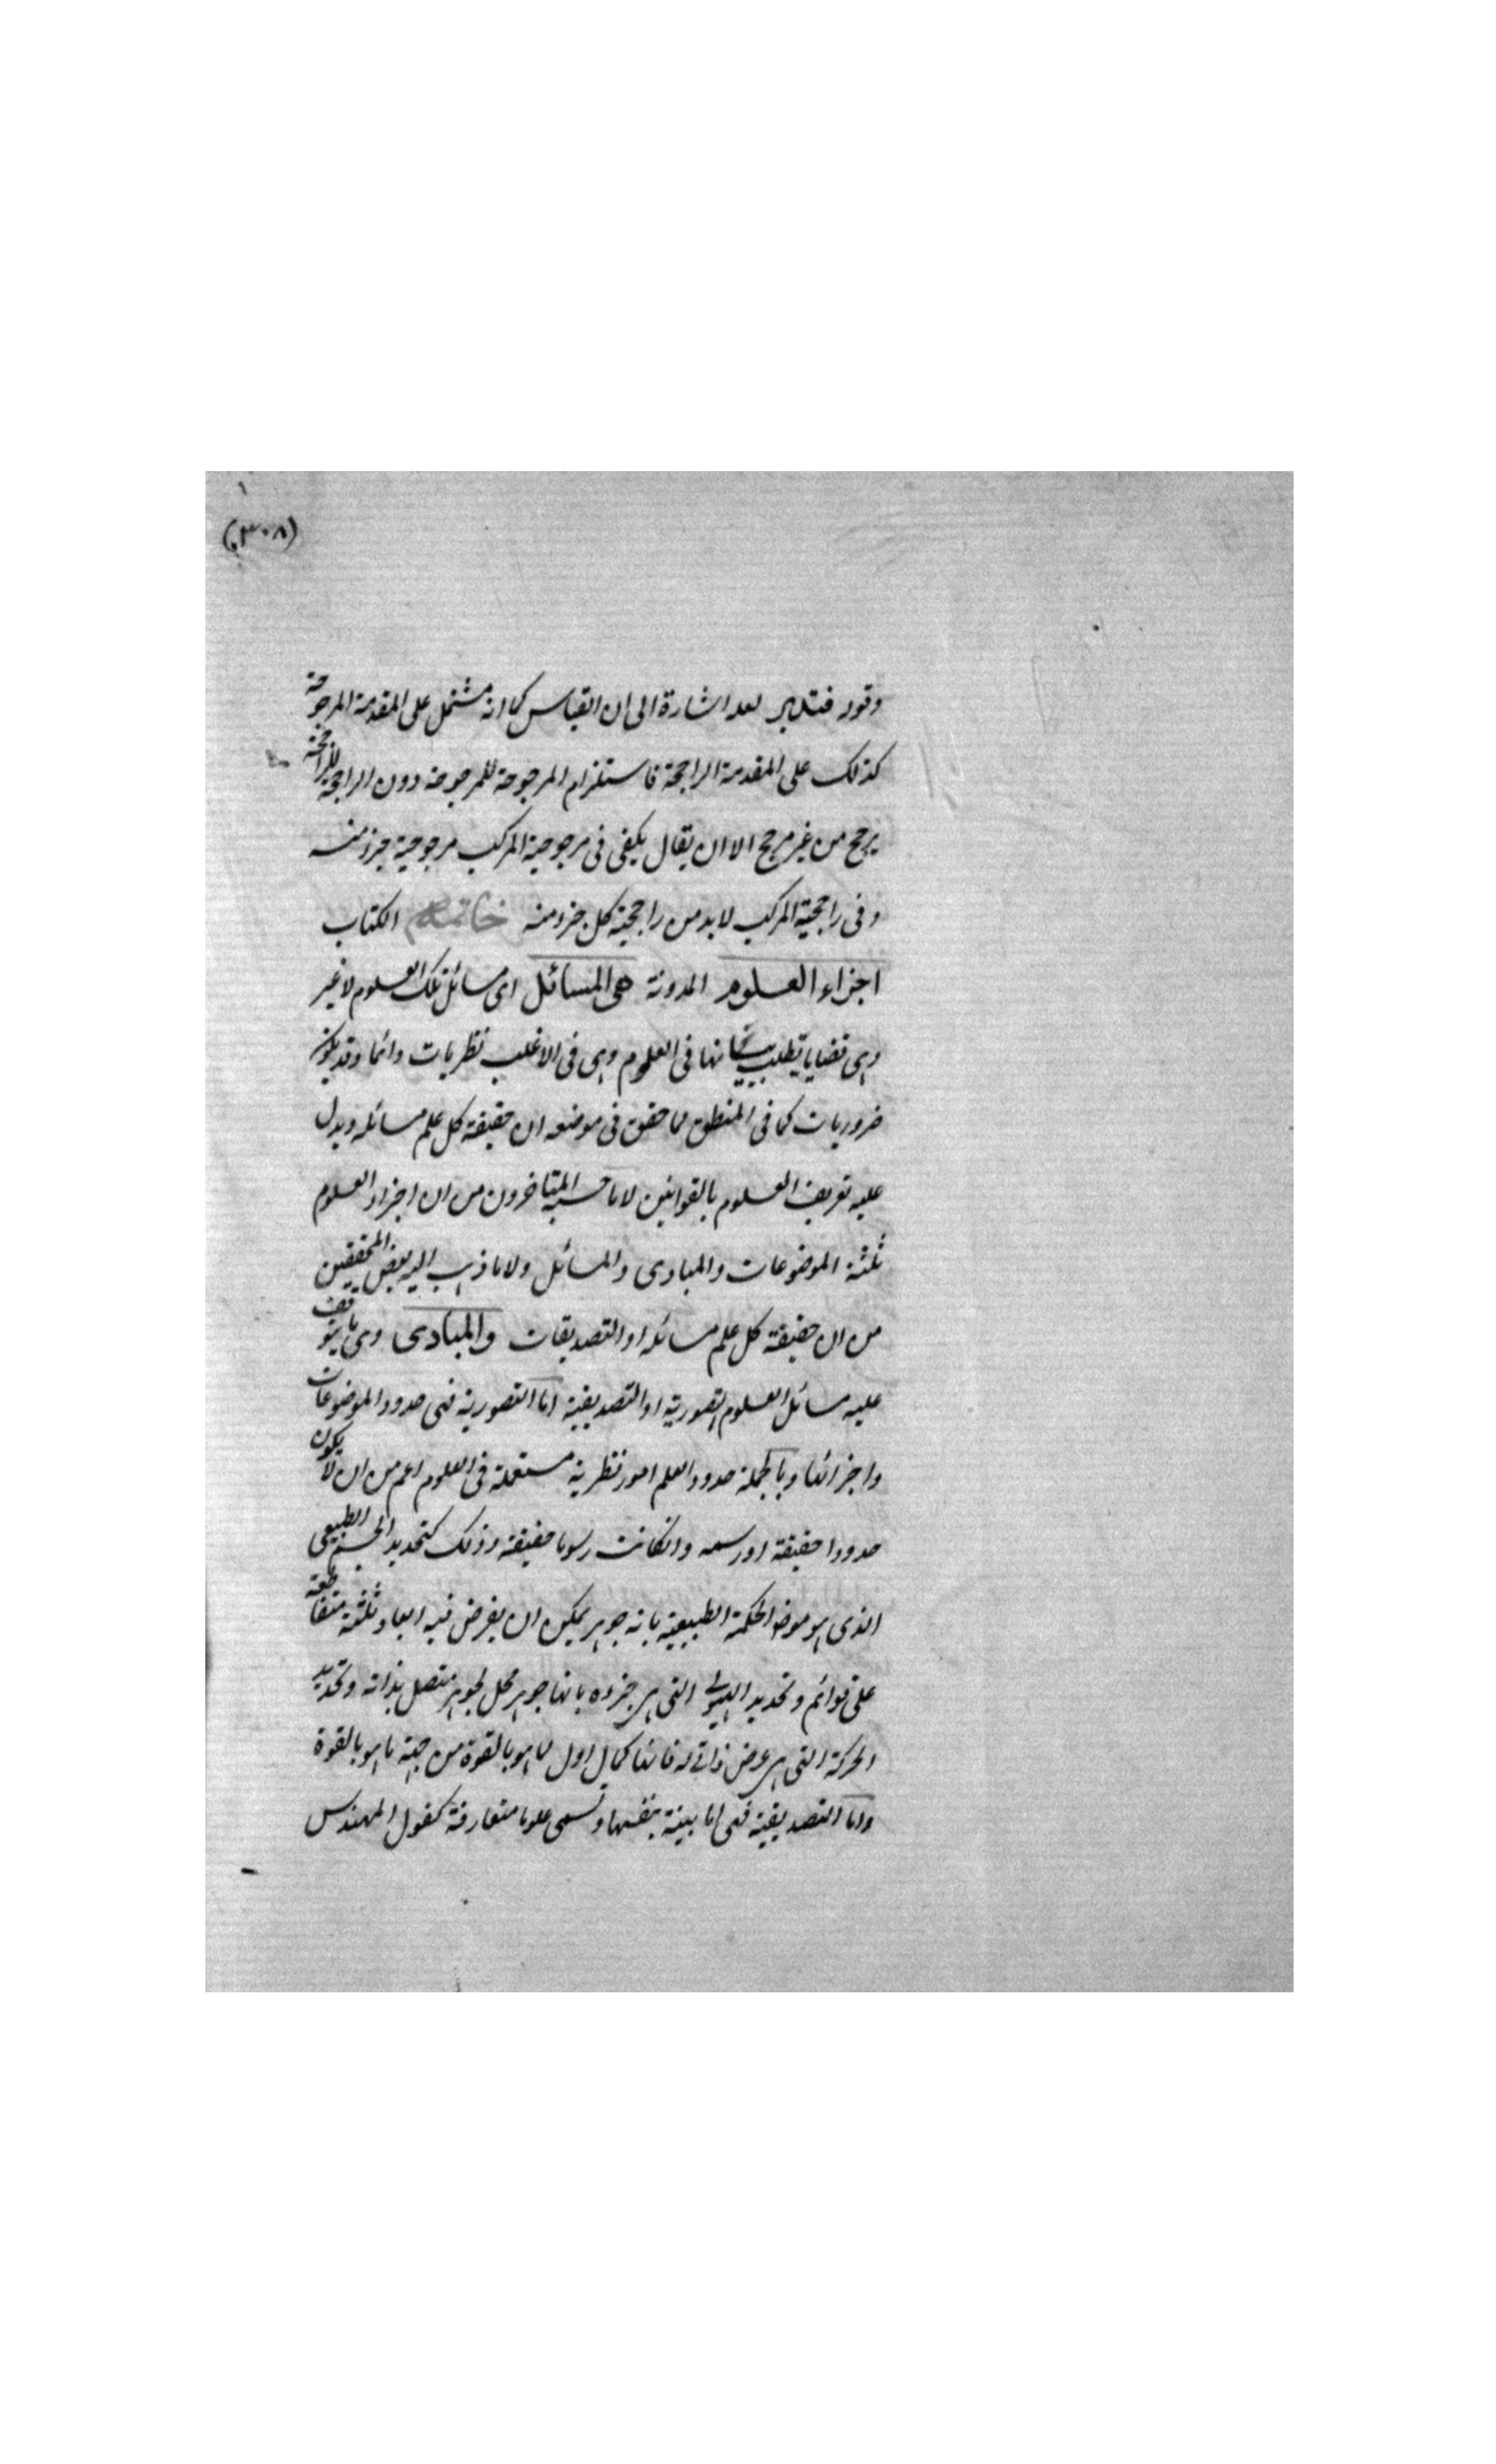 (٣٠٨)
وقوله فتدبر لعله اشارة الى ان القياس كما انه مشتمل على المقدمة المرجوحة
كذلك على المقدمة الراجحة فاستلزام المرجوحة للمرجوحة دون الراجحة للراجحة
ترجح من غير مرجح الا ان يقال يكفى فى مرجوحية المركب مرجوحية جزء منه
وفى راجحية المركب لابد من راجحية كل جزء منه خاتمة الكتاب
اجزاء العلوم المدونة هى المسائل اى مسائل تلك العلوم لا غير
وهى قضايا يطلب بيانها فى العلوم وهى فى الاغلب نظريات دائما وقد يكون
ضروريات كما فى المنطق لما حقق فى موضعه ان حقيقة كل علم مسائله ويدل
عليه تعريف العلوم بالقوانين لا ما حسبه المتاخرون من ان اجزاء العلوم
ثلثة الموضوعات والمبادى والمسائل ولا ما ذهب اليه بعض المحققين
من ان حقيقة كل علم مسائله او التصديقات والمبادى وهى ما يتوقف
عليه مسائل العلوم التصورية او التصديقية اما التصورية فهى حدود الموضوعات
واجزائها وبالجملة حدود العلم امور نظرية مستعملة فى العلوم اعم من ان لا يكون
حدودا حقيقة او رسمه وانكانت رسوما حقيقة وذلك كتحديد الجسم الطبيعى
الذى هو موضوع الحكمة الطبيعية بانه جوهر يمكن ان يفرض فيه ابعاد ثلثة متقاطعة
على قوائم وتحديد الهيولى التى هى جزءه بانها جوهر محل لجوهر متصل بذاته وتحديد
الحركة التى هى عرض ذاتى له فانها كمال اول لما هو بالقوة من جهة ما هو بالقوة
واما التصديقية فهى اما بينة بنفسها وتسمى علوما متعارفة كقول المهندس